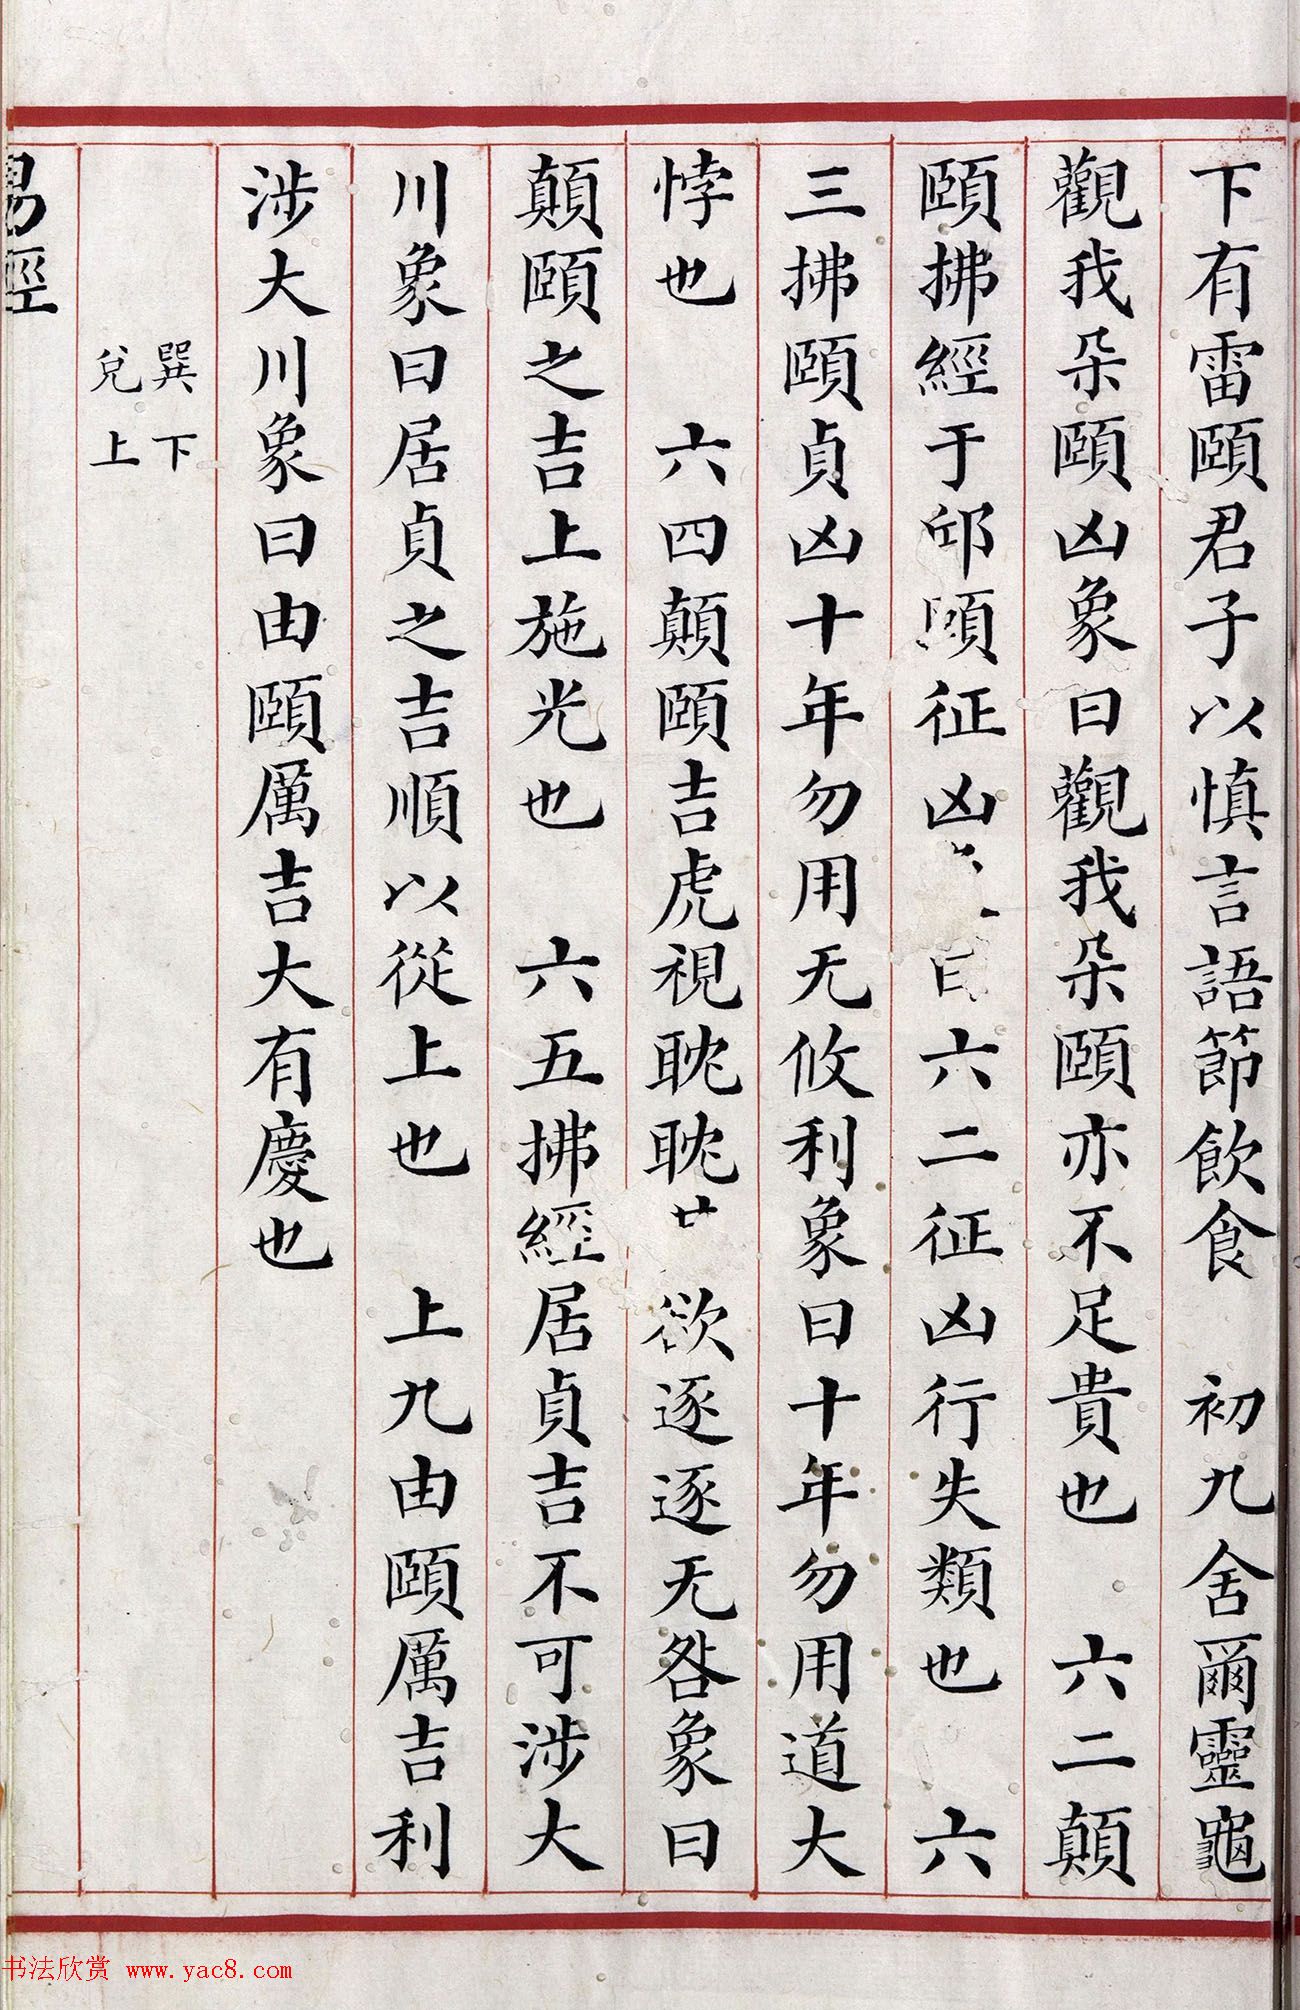 下有雷頤君子以慎言語節飲食　初九舍爾靈龜
觀我朵頤凶象曰觀我朵頤亦不足貴也　六二顛
頤拂經于邱頤征凶曰六二征凶行失類也　六
三拂頤貞凶十年勿用无攸利象曰十年勿用道大
悖也　六四顛頤吉虎視眈眈欲逐逐无咎象曰
顛頤之吉上施光也　六五拂經居貞吉不可涉大
川象曰居貞之吉順以從上也　上九由頤厲吉利
涉大川象曰由頤厲吉大有慶也
巽下
兌上
易經
书法欣赏 www.yac8.com